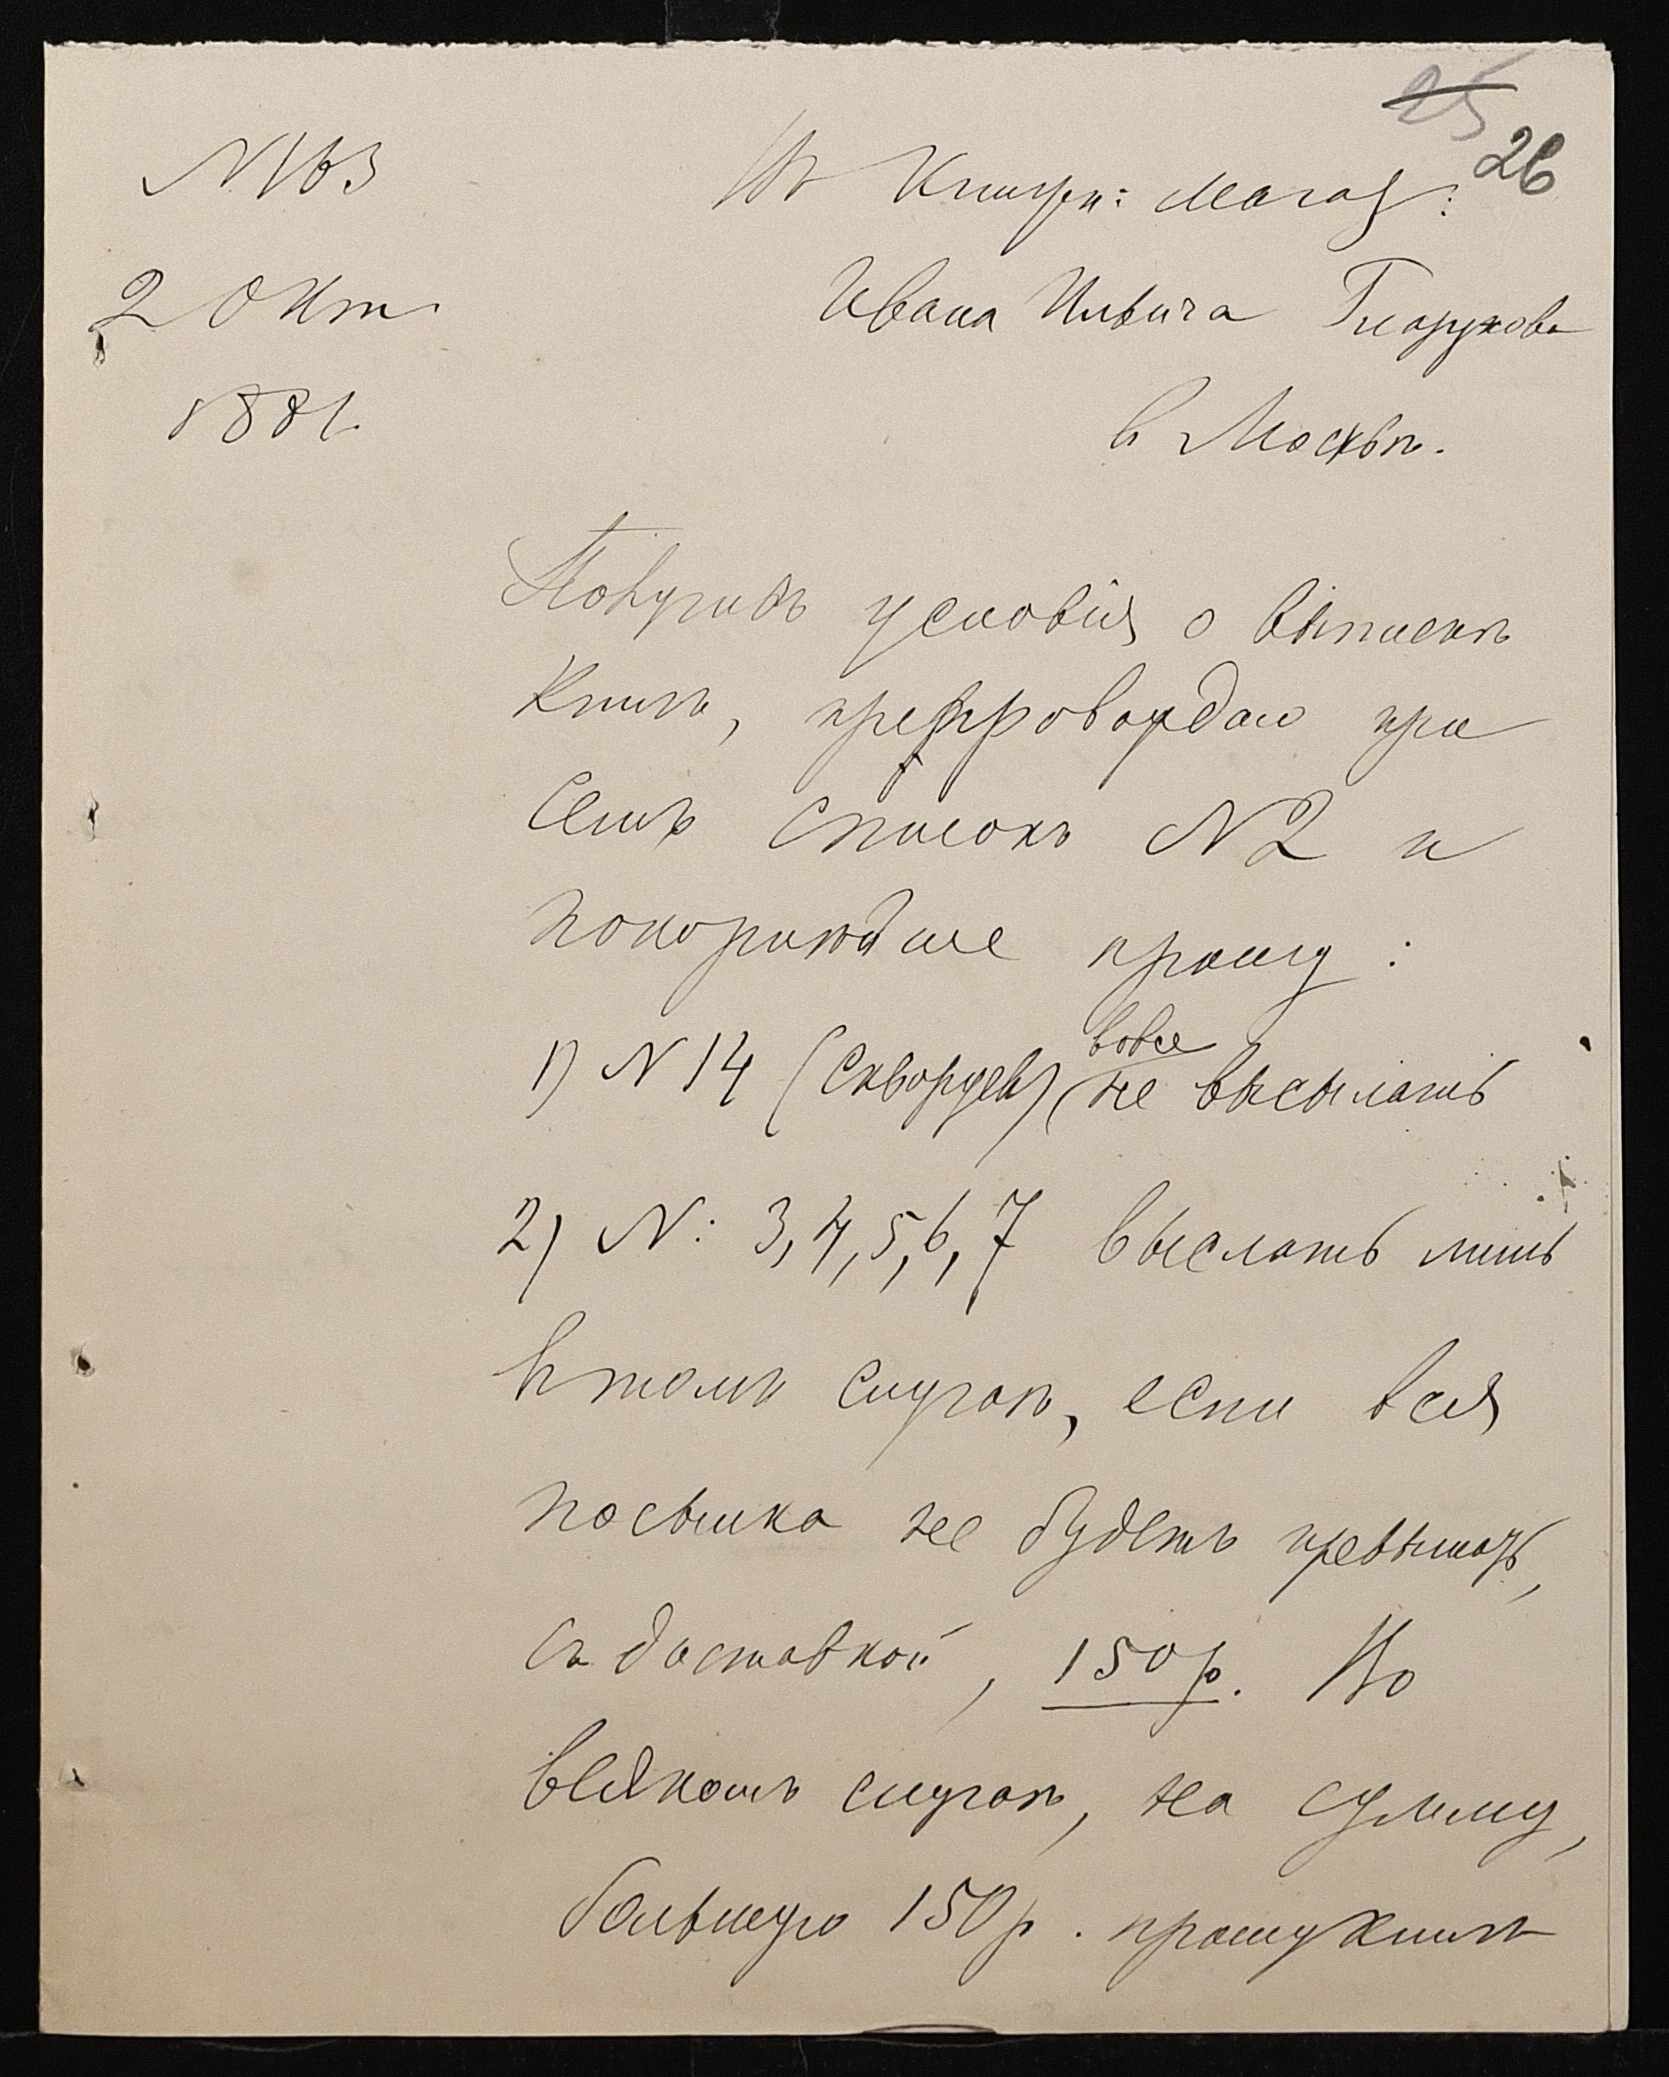 25
26
N 163
Въ Книжн: Магаз:
2 Окт.
Ивана Ильича Глазунова
1881.
в Москвѣ.
Получивъ условія о выпискѣ
книгъ, препровождаю при
семъ списокъ N 2 и
покорнѣйше прошу:
вовсе
1) N 14 (Скворцевъ) не высылать
2) N: 3, 4, 5, 6, 7 выслать лишь
в томъ случаѣ, если вся
посылка не будетъ превышать,
съ доставкой, 150 р. Во
всякомъ случаѣ, на сумму,
большую 150 р. прошу книгъ